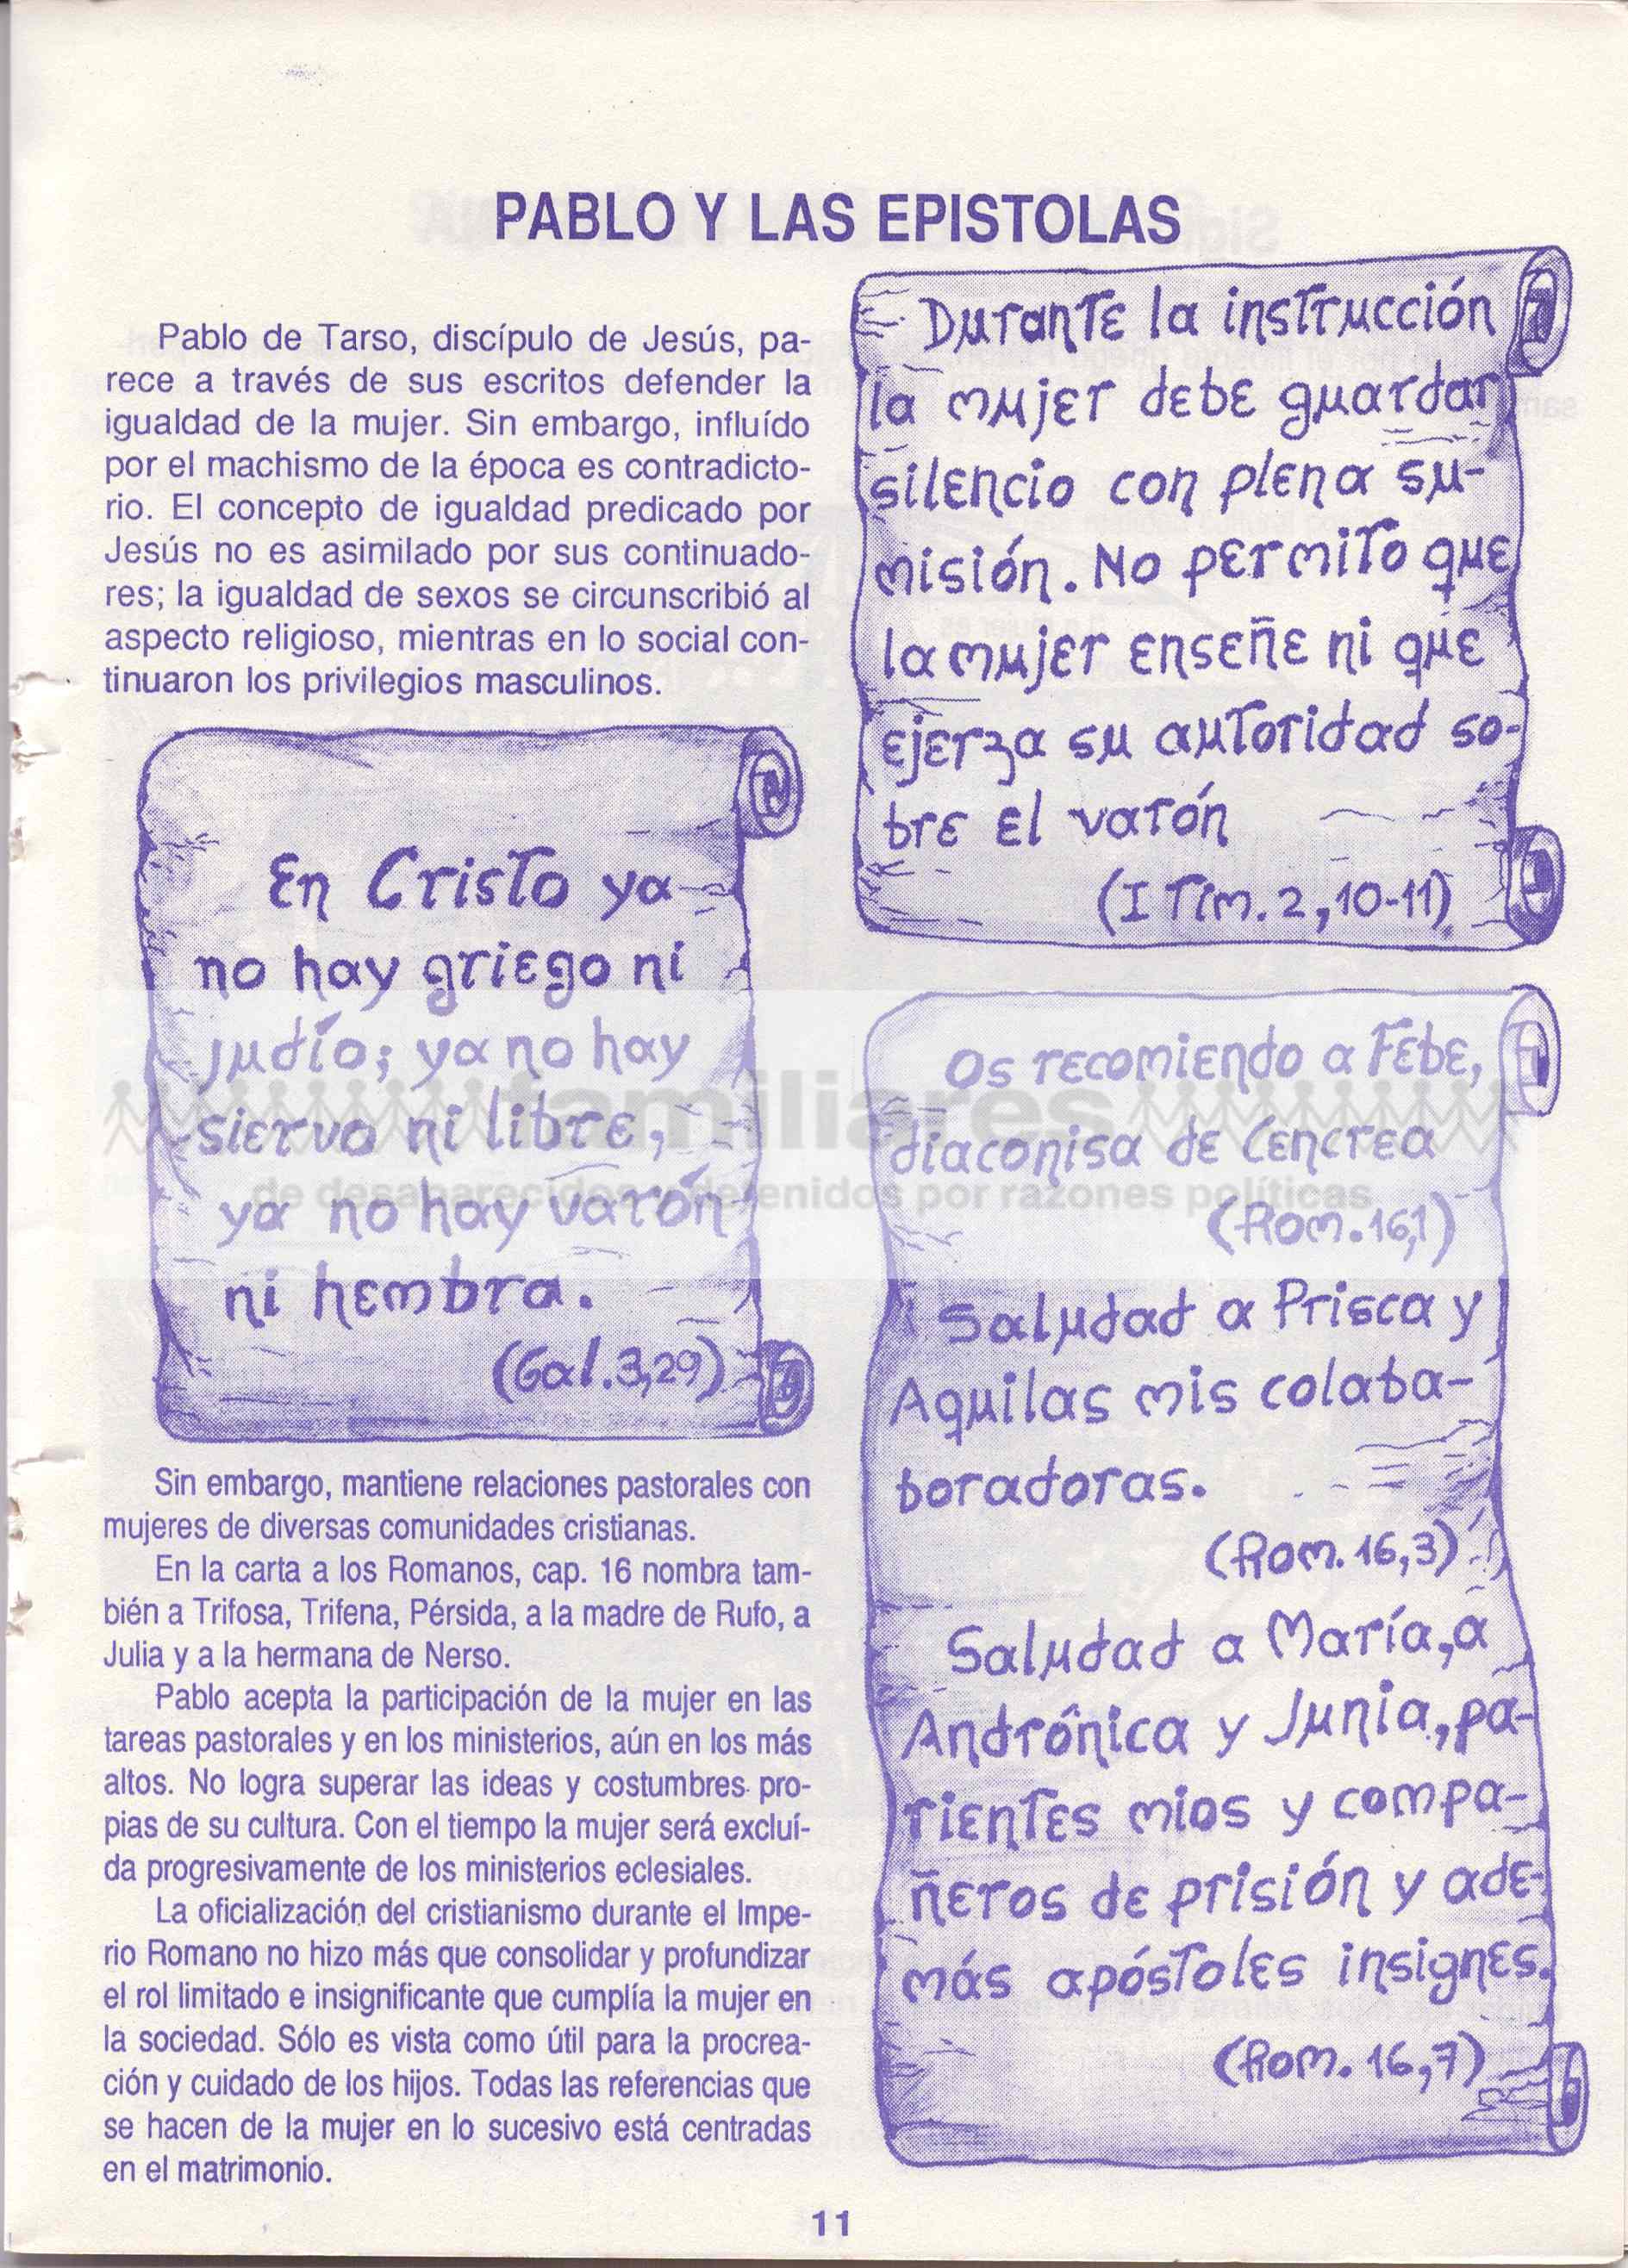 PABLO Y LAS EPISTOLAS
Pablo de Tarso, discípulo de Jesús, pa-
rece a través de sus escritos defender la
igualdad de la mujer. Sin embargo, influído
por el machismo de la época es contradicto-
rio. El concepto de igualdad predicado por
Jesús no es asimilado por sus continuado-
res; la igualdad de sexos se circunscribió al
aspecto religioso, mientras en lo social con-
tinuaron los privilegios masculinos.
En Cristo ya
no hay griego ni
judío; ya no hay
siervo ni libre,
ya no hay varón
ni hembra.
(Gal.3,29)
Sin embargo, mantiene relaciones pastorales con
mujeres de diversas comunidades cristianas.
En la carta a los Romanos, cap. 16 nombra tam-
bién a Trifosa, Trifena, Pérsida, a la madre de Rufo, a
Julia y a la hermana de Nerso.
Pablo acepta la participación de la mujer en las
tareas pastorales y en los ministerios, aún en los más
altos. No logra superar las ideas y costumbres pro-
pias de su cultura. Con el tiempo la mujer será excluí-
da progresivamente de los ministerios eclesiales.
La oficialización del cristianismo durante el Impe-
rio Romano no hizo más que consolidar y profundizar
el rol limitado e insignificante que cumplía la mujer en
la sociedad. Sólo es vista como útil para la procrea-
ción y cuidado de los hijos. Todas las referencias que
se hacen de la mujer en lo sucesivo está centradas
en el matrimonio.
Durante la instrucción
la mujer debe guardar
silencio con plena su-
misión. No permito que
la mujer enseñe ni que
ejerza su autoridad so-
bre el varón
(I Tim. 2,10-11)
Os recomiendo a Febe,
diaconisa de Cencrea
(Rom.16,1)
Saludad a Prisca y
Aquilas mis colaba-
boradoras.
(Rom. 16,3)
Saludad a María, a
Andrônica y Junia, pa-
rientes mios y compa-
ñeros de prisión y ade-
más apóstoles insignes.
(Rom. 16,7)
familiares
de desaparecidos y detenidos por razones políticas
11